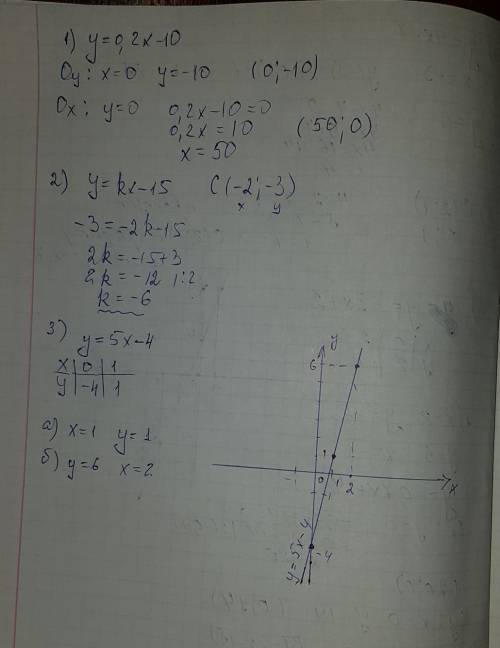 1) y=0,2x-10
Oy: x=0 y=-10 (0;-10)
Ox: y=0 0,2x-10=0
0,2x=10 (50;0)
x=50
2) y=kx-15 C(-2;-3)
x y
-3=-2k-15
2k=-15+3
2k=-12 |:2
k=-6
3) y=5x-4
x | 0 | 1
y | -4 | 1
а) x=1 y=1
б) y=6 x=2
y
6
1
-1 0 1 2 x
-4
y=5x-4